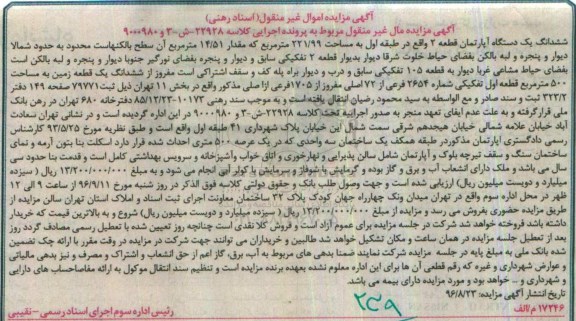 آگهی مزایده اموال غیر منقول (اسناد رهنی)
آگهی مزایده مال غیر منقول مربوط به پرونده اجرایی کلاسه ۲۲۹۲۸-ش-۳ و ۹۰۰۰۹۸۰
ششدانگ یک دستگاه آپارتمان قطعه ۲ واقع در طبقه اول به مساحت ۲۲۱/۹۹ مترمربع که مقدار ۱۴/۵۱ مترمربع آن سطح بالکنهاست محدود به حدود شمالا
دیوار و پنجره و لبه بالکن بفضای حیاط خلوت شرقا دیوار بدیوار قطعه ۲ تفکیکی سابق و دیوار و پنجره بفضای نورگیر جنوبا دیوار و پنجره و لبه بالکن است
بفضای حیاط مشاعی غربا دیوار به قطعه ۱۰۵ تفکیکی سابق و درب و دیوار براه پله کف و سقف اشتراکی است مفروز از ششدانگ یک قطعه زمین به مساحت
۵۰۰ مترمربع قطعه اول تفکیکی شماره ۲۶۵۴ فرعی از ۷۲ اصلی مفروز از ۱۷۰۵ فرعی از اصلی مذکور واقع در بخش ۱۱ تهران ذیل ثبت ۷۹۷۷۱ صفحه ۱۴۹ دفتر
۳۲۳/۲ ثبت و سند صادر و مع الواسطه به سید محمود رضیان انتقال یافته است و به موجب سند رهنی ۱۰۱۷۳-۸۵/۱۲/۲۳ دفترخانه ۶۸۰ تهران در رهن بانک
ملی قرارگرفته و به علت عدم ایفای تعهد منجر به صدور اجرائیه تحت کلاسه ۲۲۹۲۸-ش-۳ و ۹۰۰۰۹۸۰ در این اداره گردیده است و در نشانی تهران سعادت
آباد خیابان علامه شمالی خیابان هیجدهم شرقی سمت شمال این خیابان پلاک شهرداری ۴۱ طبقه اول واقع است و طبق نظریه مورخ ۹۳/۵/۲۵ کارشناس
رسمی دادگستری آپارتمان مذکور در طبقه همکف یک ساختمان سه واحدی که در یک عرصه ۵۰۰ متری احداث شده قرار دارد اسکلت بنا بتون آرمه و نمای
ساختمان سنگ و سقف تیرچه بلوک و آپارتمان شامل سالن پذیرایی و نهارخوری و اتاق خواب و آشپزخانه و سرویس بهداشتی کامل است و قدمت بنا حدود سی
سال می باشد و ملک دارای انشعاب آب و برق و گاز بوده و گرمایش با شوفاژ و سرمایش با کولر آبی انجام می شود و به مبلغ ۱۳/۲۰۰/۰۰۰/۰۰۰ ریال (سیزده
میلیارد و دویست میلیون ریال) ارزیابی شده است و جهت وصول طلب بانک و حقوق دولتی کلاسه فوق الذکر در روز شنبه مورخ ۹۶/۹/۱۱ از ساعت ۹ الی ۱۲
ظهر در محل اداره سوم واقع در تهران میدان ونک چهارراه جهان کودک پلاک ۳۲ ساختمان معاونت اجرای ثبت اسناد و املاک استان تهران سالن مزایده از
طریق مزایده حضوری بفروش می رسد و مزایده از مبلغ ۱۳/۲۰۰/۰۰۰/۰۰۰ ریال (سیزده میلیارد و دویست میلیون ریال) شروع و به بالاترین قیمت که خریدار
داشته باشد فروخته خواهد شد شرکت در جلسه مزایده برای عموم آزاد است و فروش کلا نقدی است چنانچه روز تعیین شده با تعطیل رسمی مصادف گردد روز
بعد از تعطیل جلسه مزایده در همان ساعت و مکان تشکیل خواهد شد طالبین و خریداران می توانند جهت شرکت در مزایده در وقت مقرر با ارائه چک تضمین
شده بانک ملی به مبلغ پایه در جلسه مزایده شرکت نمایند ضمنا بدهی های مربوط به آب، برق، گاز اعم از حق انشعاب و اشتراک و مصرف و نیز بدهی مالیاتی
و عوارض شهرداری و غیره که رقم قطعی آن ها برای این اداره معلوم نشده بعهده برنده مزایده است و تنظیم سند انتقال موکول به ارائه مفاصاحساب های دارایی
و شهرداری و ... خواهد بود و مورد مزایده دارای بیمه می باشد.
تاریخ انتشار آگهی مزایده: ۹۶/۸/۲۳
۱۷۲۴۶ م/الف
رئیس اداره سوم اجرای اسناد رسمی - نقیبی
۲۳۹